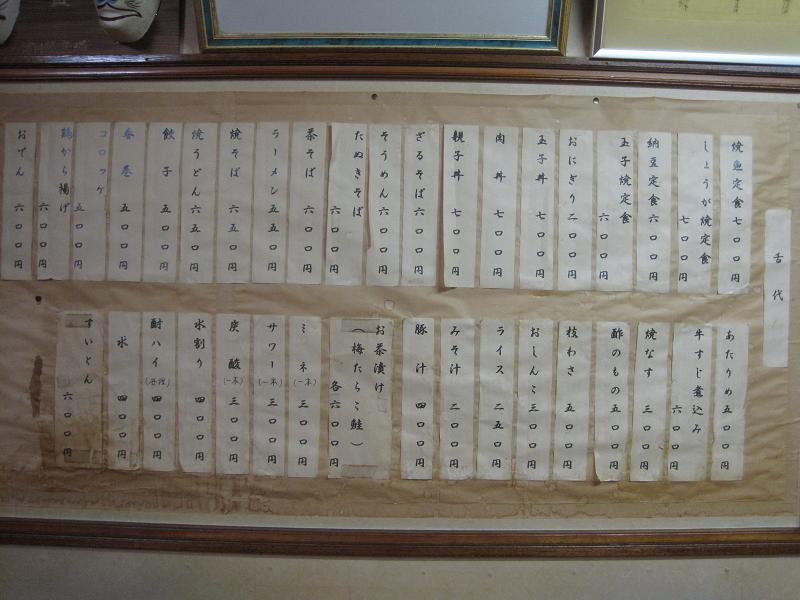 舌代
焼魚定食 七〇〇円
しょうが焼定食 七〇〇円
納豆定食 六〇〇円
玉子焼定食 六〇〇円
おにぎり 二〇〇円
玉子丼 七〇〇円
肉丼 七〇〇円
親子丼 七〇〇円
ざるそば 六〇〇円
そうめん 六〇〇円
たぬきそば 六〇〇円
茶そば 六〇〇円
ラーメン 五五〇円
焼そば 六五〇円
焼うどん 六五〇円
餃子 五〇〇円
春巻 五〇〇円
コロッケ 五〇〇円
鶏から揚げ 六〇〇円
おでん 六〇〇円
あたりめ 五〇〇円
牛すじ煮込み 六〇〇円
焼なす 三〇〇円
酢のもの 五〇〇円
枝わさ 五〇〇円
おしんこ 三〇〇円
ライス 二五〇円
みそ汁 二〇〇円
豚汁 四〇〇円
お茶漬け
(梅たらこ鮭) 各六〇〇円
ミネ(一本) 三〇〇円
サワー(一本) 三〇〇円
炭酸(一本) 三〇〇円
水割り 四〇〇円
酎ハイ(各種) 四〇〇円
氷 四〇〇円
すいとん 六〇〇円